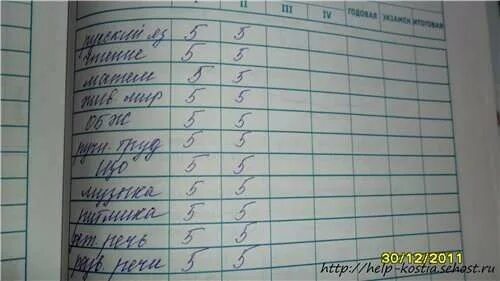 II III IV ГОДОВАЯ ЭКЗАМЕН ИТОГОВАЯ
русский яз 5 5
чтение 5 5
матем 5 5
жив мир 5 5
ОБЖ 5 5
ручн. труд 5 5
ИЗО 5 5
музыка 5 5
ритмика 5 5
речь 5 5
разв. речи 5 5
30/12/2011
http://help-kostia.sehost.ru